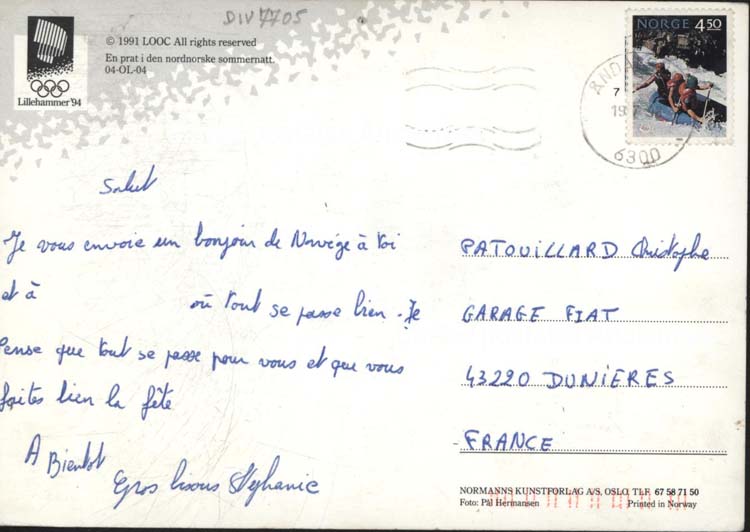 DIV7705
© 1991 LOOC All rights reserved
En prat i den nordnorske sommernatt.
04-OL-04
Lillehammer '94
NORGE 4.50
ÅND
7
19
6300
Salut
Je vous envoie un bonjour de Norvége à toi
et à où tout se passe bien. Je
Pense que tout se passe pour vous et que vous
faites bien la fête
A Bientot
Gros bisous Stéphanie
PATOUILLARD Christophe
GARAGE FIAT
43220 DUNIERES
FRANCE
NORMANNS KUNSTFORLAG A/S, OSLO, TLF. 67 58 71 50
Foto: Pål Hermansen Printed in Norway